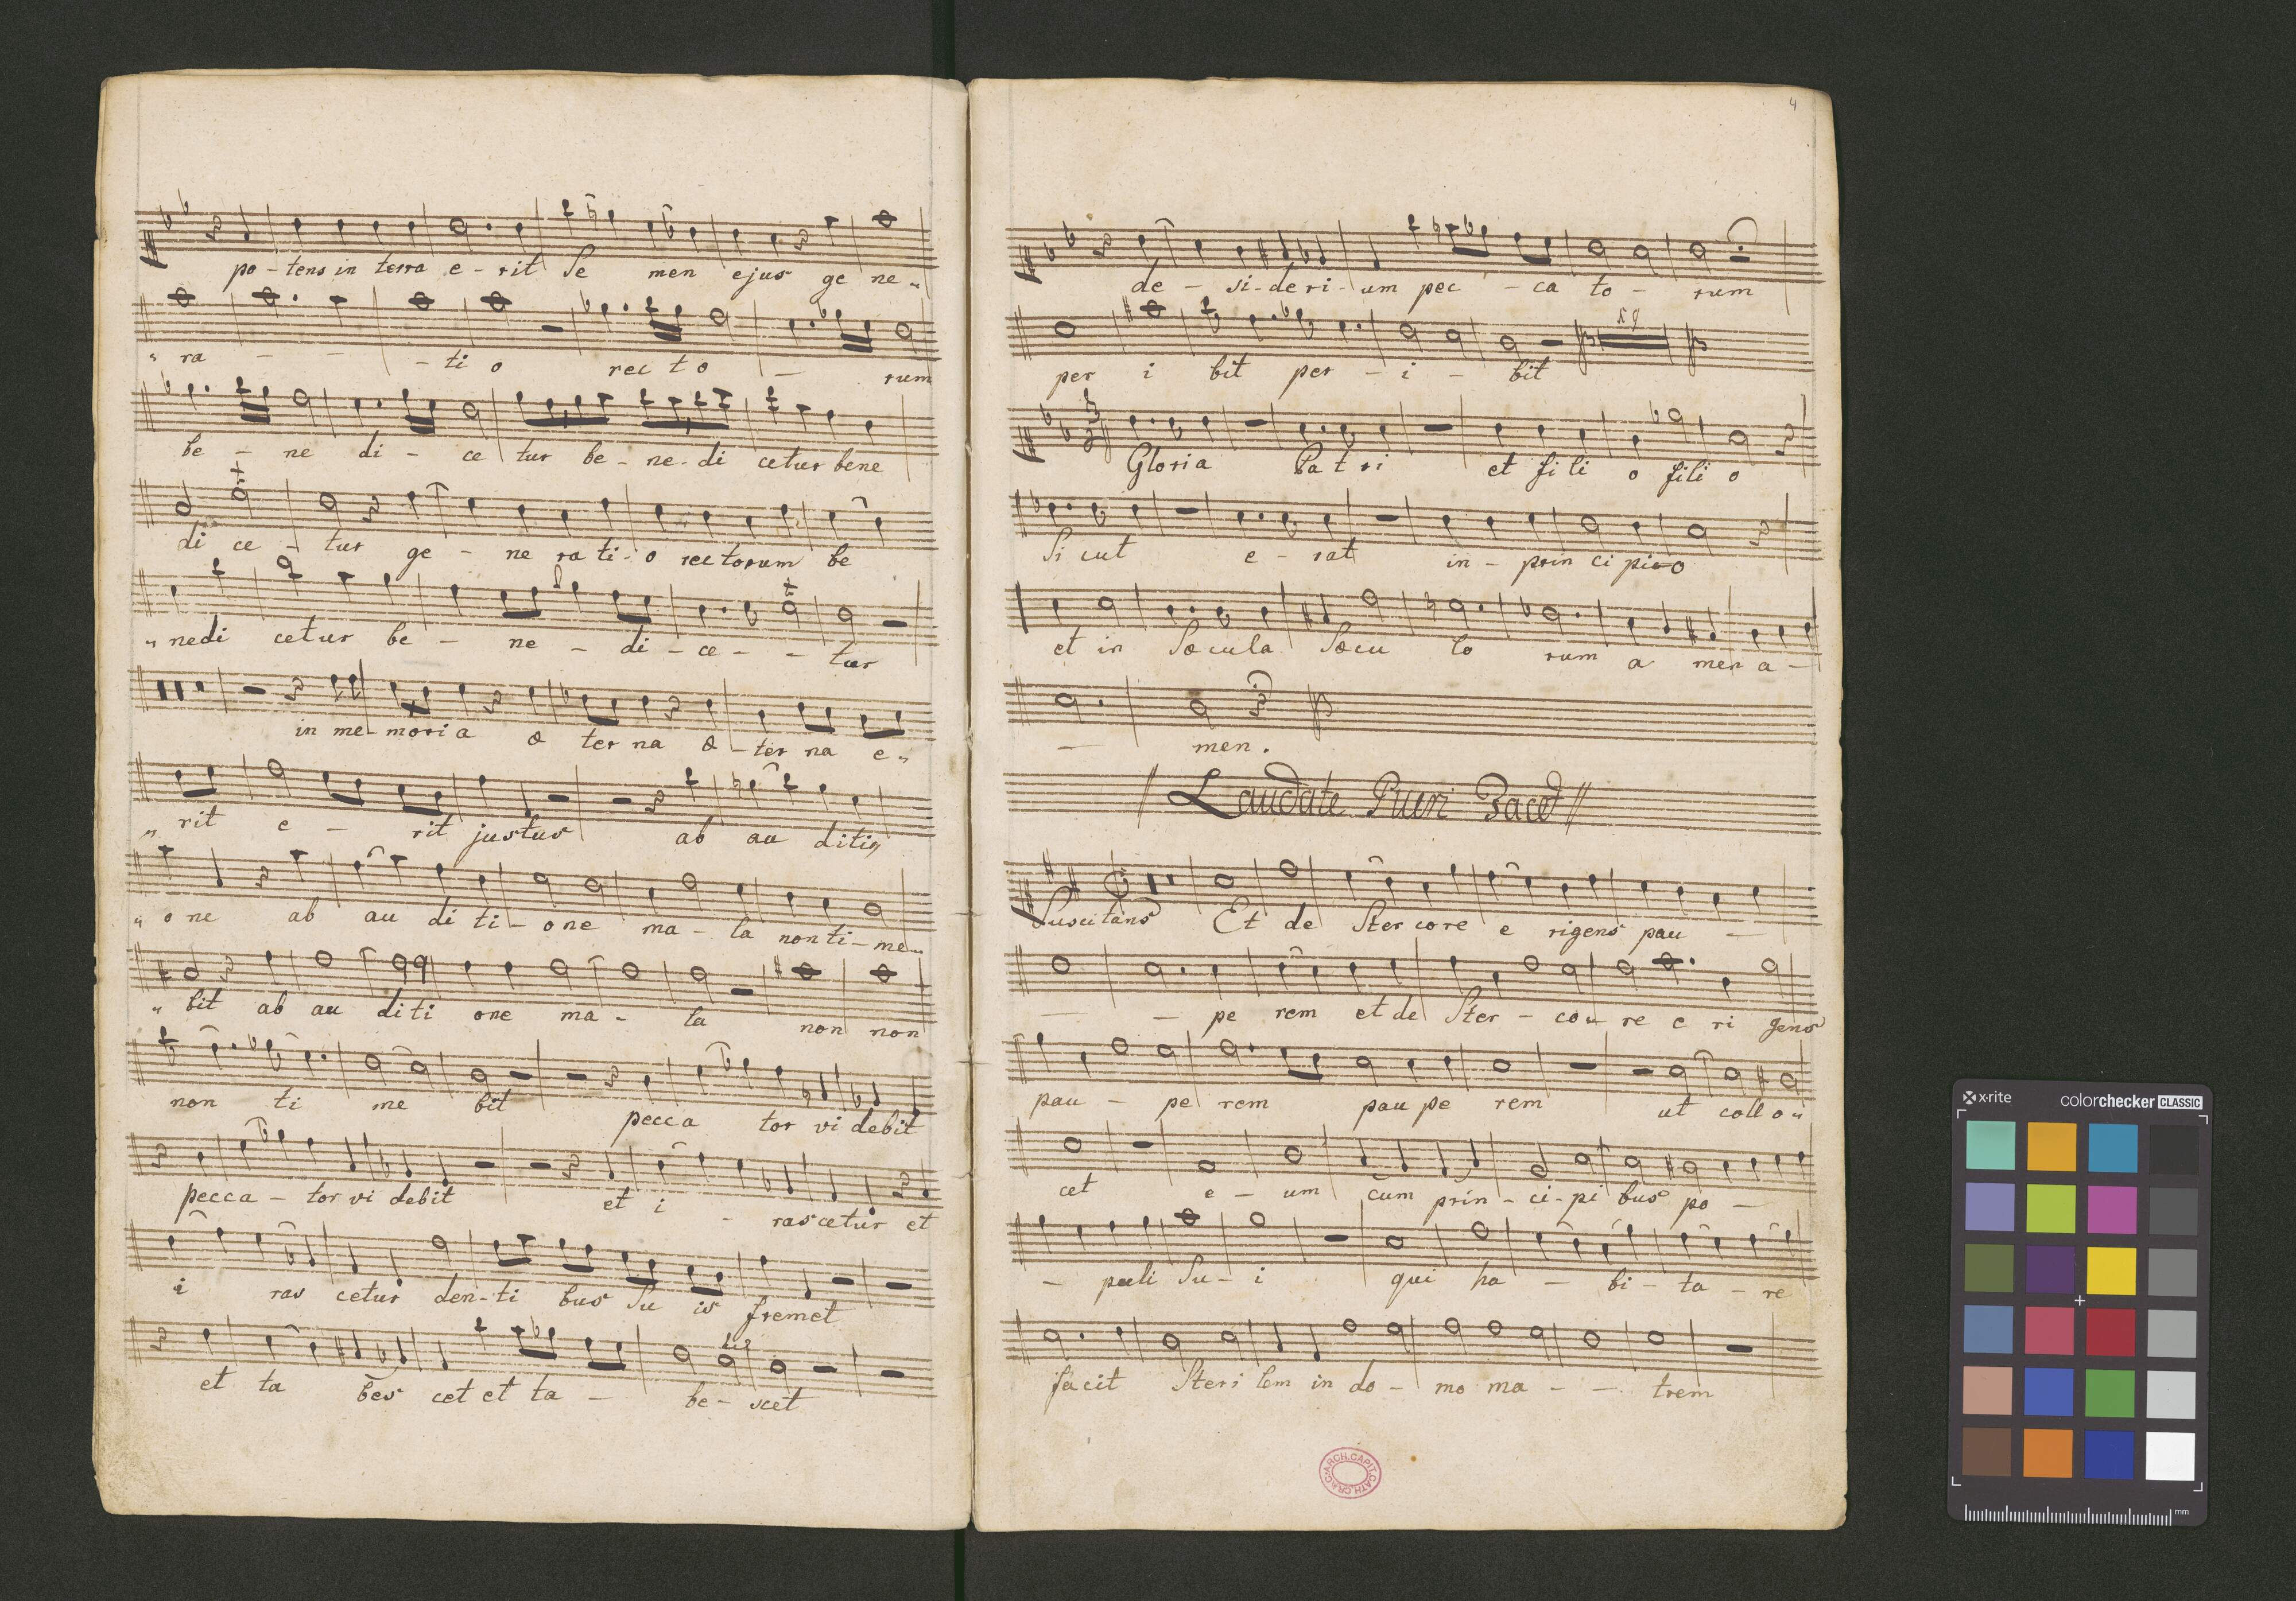 po - tens in terra e - rit Se men ejus ge ne „
„ ra - - - ti o rec t o - rum
be - ne di - ce tur be - ne - di cetur bene
di ce - tur ge - ne ra ti - o rectorum be
„ nedi cetur be - ne - di - ce - - tur
in me - mori a æ ter na æ - ter na e „
„ rit e - rit justus ab au ditio „
„ o ne ab au di ti - o ne ma - la non ti - me „
„ bit ab au di ti one ma - la non non
non ti me bit pecca tor vi debit
pecca - tor vi debit et i - rascetur et
i ras cetur den - ti bus Su is fremet
et ta bes cet et ta - be - scet
4
de - si - de ri - um pec - ca to - rum
per i bit per - i - bit
19
3
2
Gloria Pa t ri et fi li o fili o
Si cut e - rat in - prin ci pi o
et in Sæcula Sæcu lo rum a men a -
- men .
// Laudate Pueri Tacet //
Suscitans Et de Ster core e rigens pau -
- - pe rem et de Ster - co - re e ri gens
pau - pe rem pau pe rem ut collo „
cet e - um cum prin - ci - pi bus po -
- puli Su - i qui ha - bi - ta - re
facit Steri lem in do - mo ma - - trem
ARCH. CAPIT. CATH. CRAC.
x-rite
colorchecker CLASSIC
mm